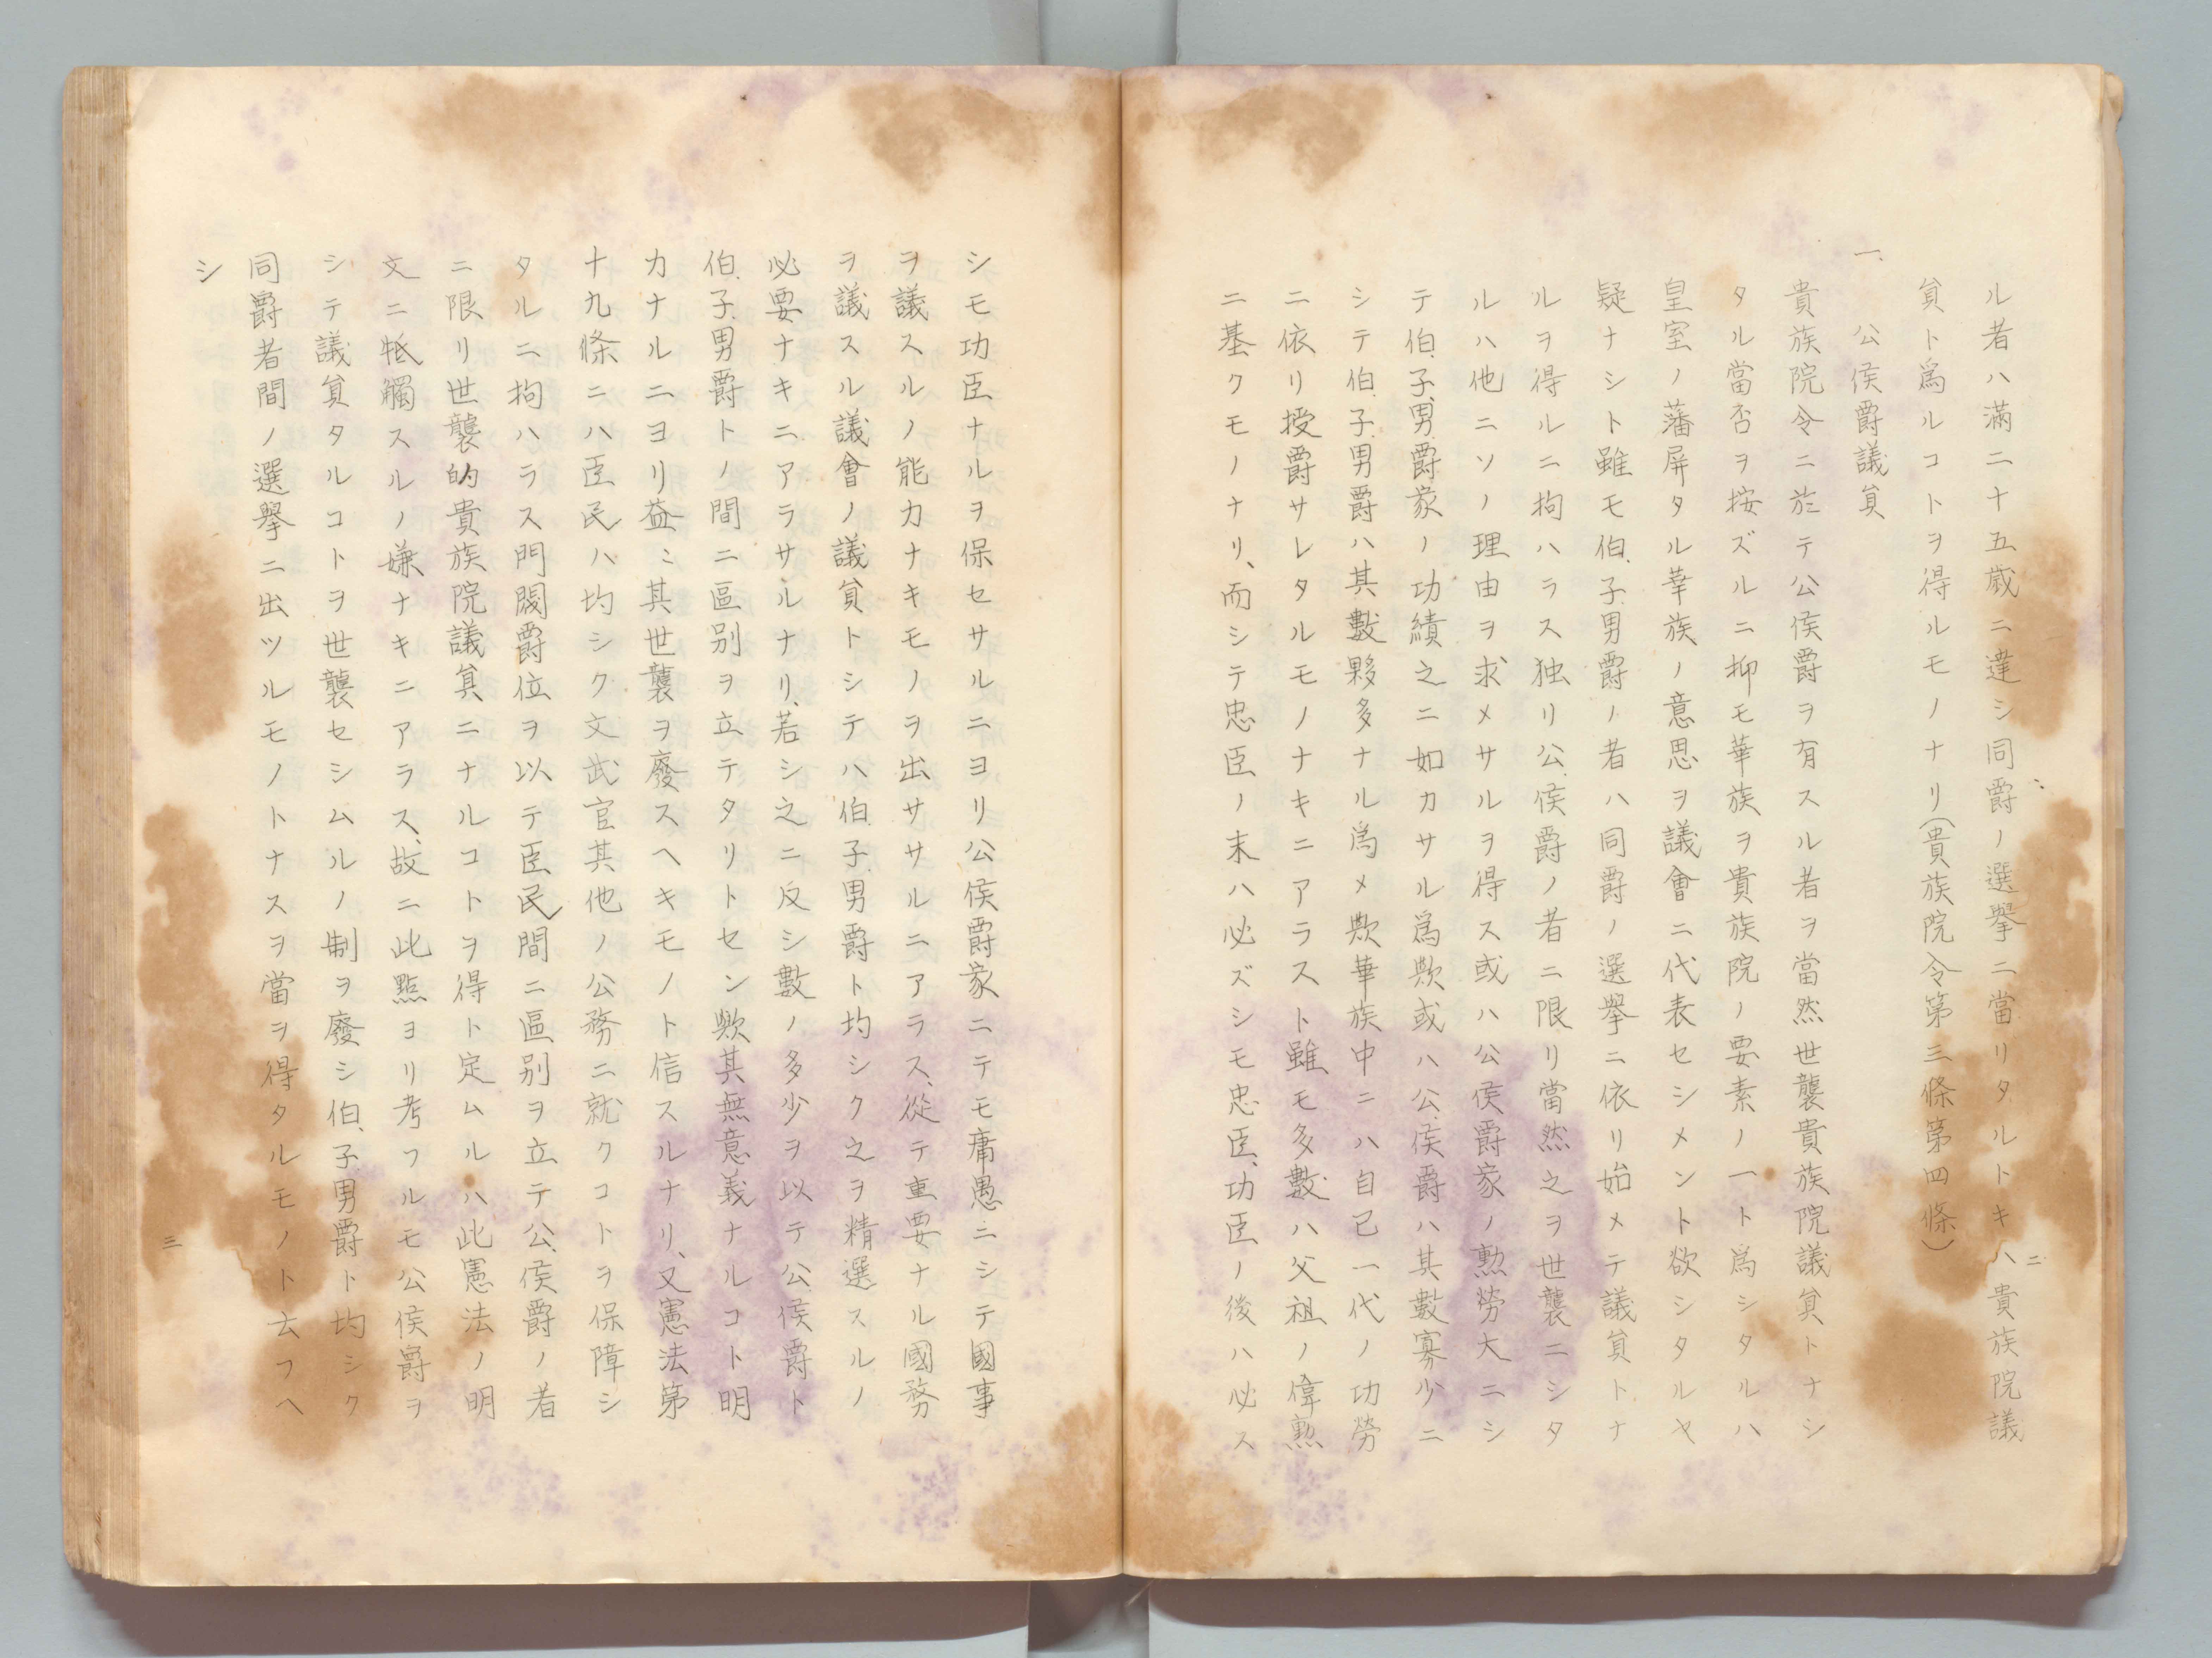 二
ル者ハ滿二十五歲ニ達シ同爵ノ選擧ニ當リタルトキハ貴族院議
員ト爲ルコトヲ得ルモノナリ(貴族院令第三條第四條)
一、公侯爵議員
貴族院令ニ於テ公侯爵ヲ有スル者ヲ當然世襲貴族院議員トナシ
タル當否ヲ按ズルニ抑モ華族ヲ貴族院ノ要素ノ一ト爲シタルハ
皇室ノ藩屏タル華族ノ意思ヲ議會ニ代表セシメント欲シタルヤ
疑ナシト雖モ伯、子、男爵ノ者ハ同爵ノ選擧ニ依リ始メテ議員トナ
ルヲ得ルニ拘ハラス独リ公、侯爵ノ者ニ限リ當然之ヲ世襲ニシタ
ルハ他ニソノ理由ヲ求メサルヲ得ス或ハ公侯爵家ノ勲勞大ニシ
テ伯、子、男、爵家ノ功績之ニ如カサル爲歟或ハ公、侯爵ハ其數寡少ニ
シテ伯、子、男爵ハ其數夥多ナル爲メ歟華族中ニハ自己一代ノ功勞
ニ依リ授爵サレタルモノナキニアラスト雖モ多數ハ父祖ノ偉勲
ニ基クモノナリ、而シテ忠臣ノ末ハ必ズシモ忠臣、功臣ノ後ハ必ス
シモ功臣ナルヲ保セサルニヨリ公侯爵家ニテモ庸愚ニシテ國事
ヲ議スルノ能力ナキモノヲ出サヽルニアラス、從テ重要ナル國務
ヲ議スル議會ノ議員トシテハ伯、子、男爵ト均シク之ヲ精選スルノ
必要ナキニアラサルナリ、若シ之ニ反シ數ノ多少ヲ以テ公、侯爵ト
伯、子、男爵トノ間ニ區別ヲ立テタリトセン歟其無意義ナルコト明
カナルニヨリ益〻其世襲ヲ廢スヘキモノト信スルナリ、又憲法第
十九條ニハ臣民ハ均シク文武官其他ノ公務ニ就クコトヲ保障シ
タルニ拘ハラス門閥爵位ヲ以テ臣民間ニ區别ヲ立テ公、侯爵ノ者
ニ限リ世襲的貴族院議員ニナルコトヲ得ト定ムルハ此憲法ノ明
文ニ牴觸スルノ嫌ナキニアラス、故ニ此點ヨリ考フルモ公侯爵ヲ
シテ議員タルコトヲ世襲セシムルノ制ヲ廢シ伯、子、男爵ト均シク
同爵者間ノ選擧ニ出ツルモノトナスヲ當ヲ得タルモノト云フヘ
シ
三